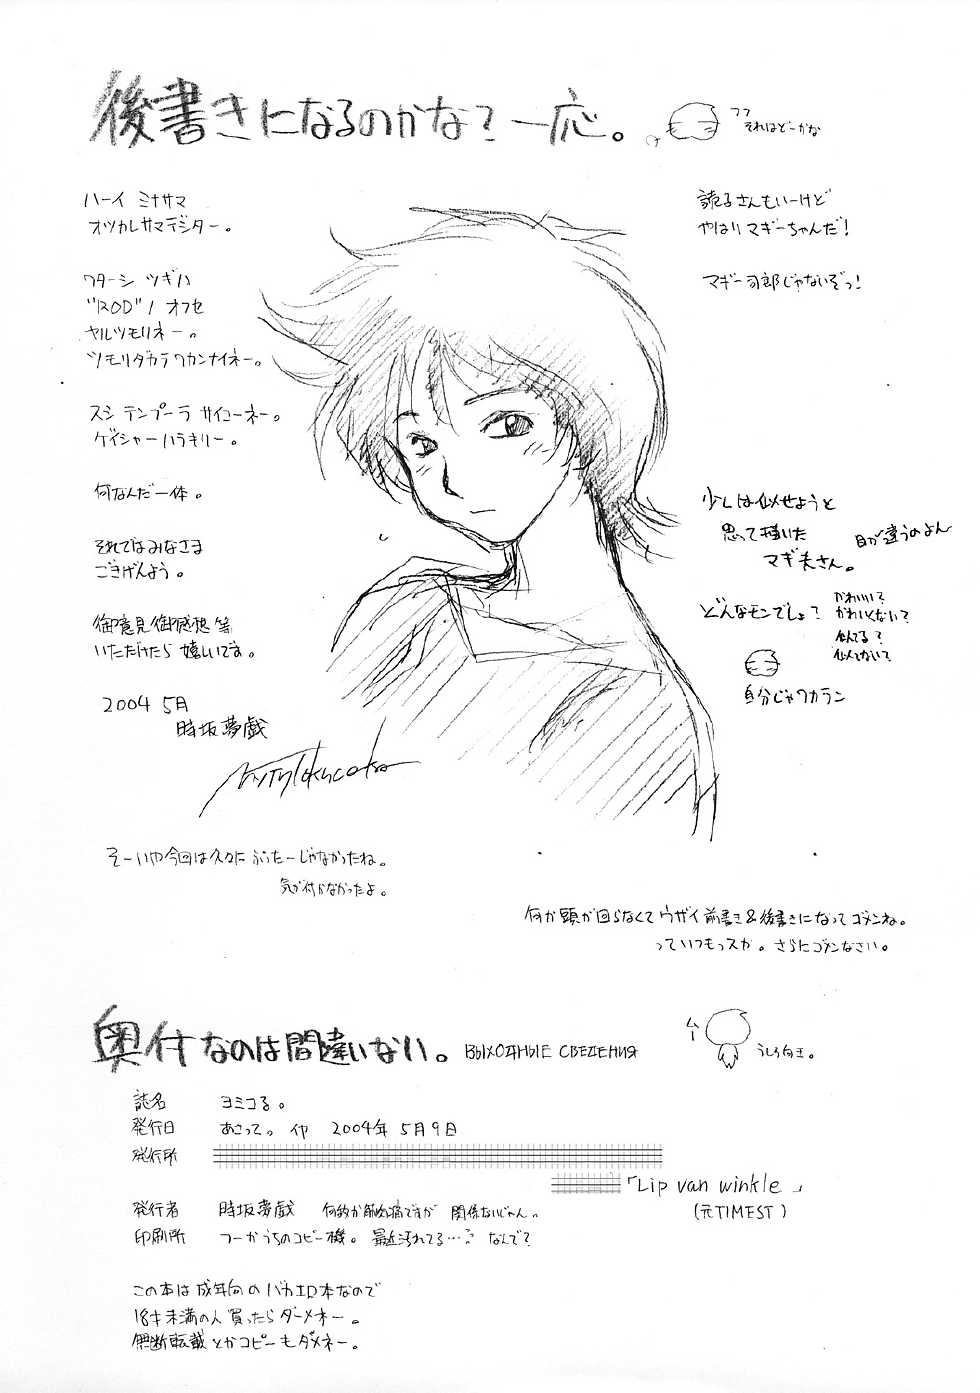 後書きになるのかな？一応。
フフ
それはどーかな
ハーイ ミナサマ
オツカレサマデシター。
ワターシ ツギハ
"ROD"ノ オフセ
ヤルツモリネー。
ツモリダカラワカンナイネー。
スシ テンプーラ サイコーネー。
ゲイシャーハラキリー。
何なんだ一体。
それではみなさま
ごきげんよう。
御意見御感想等
いただけたら嬉しいです。
2004 5月
時坂夢戯
読子さんもいーけど
やはりマギーちゃんだ！
マギー司郎じゃないぞっ！
少しは似せようと
思って描いた
マギ夫さん。
目が違うのよん
どんなモンでしょ？
かわいい？
かわいくない？
似てる？
似てないて？
自分じゃワカラン
そーいや今回は久々にふったーじゃなかったね。
気が付かなかったよ。
何か頭が回らなくてウザイ前書き＆後書きになってゴメンね。
っていつもっスか。さらにゴメンなさい。
奥付なのは間違いない。 ВЫХОДНЫЕ СВЕДЕНИЯ
ムー
うしろ向き。
誌名 ヨミコる。
発行日 あさって。イヤ 2004年 5月9日
発行所
「Lip van winkle」
(元TIMEST)
発行者 時坂夢戯 何故か筋肉痛ですが 関係ないじゃん。
印刷所 つーかうちのコピー機。最近汚れてる…？なんで？
この本は成年向のバカエロ本なので
18才未満の人買ったらダーメネー。
無断転載とかコピーもダメネー。